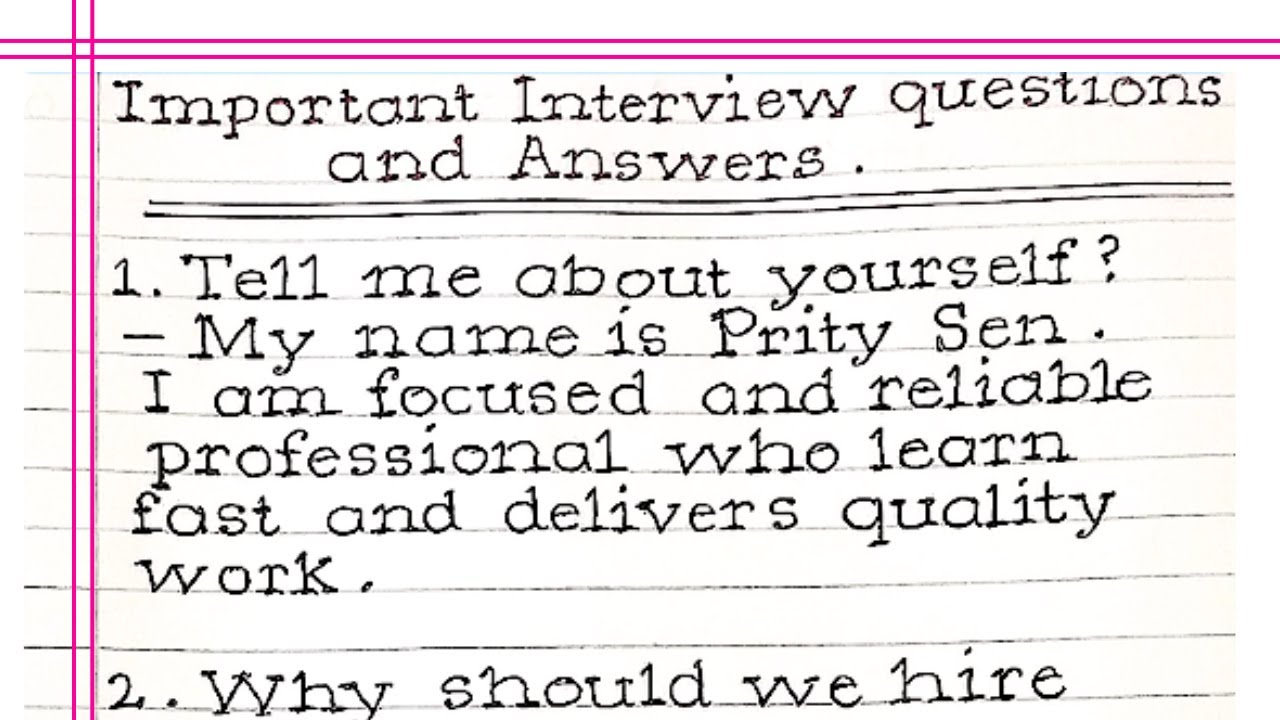 Important Interview questions
and Answers.
1. Tell me about yourself?
- My name is Prity Sen.
I am focused and reliable
professional who learn
fast and delivers quality
work.
2. Why should we hire